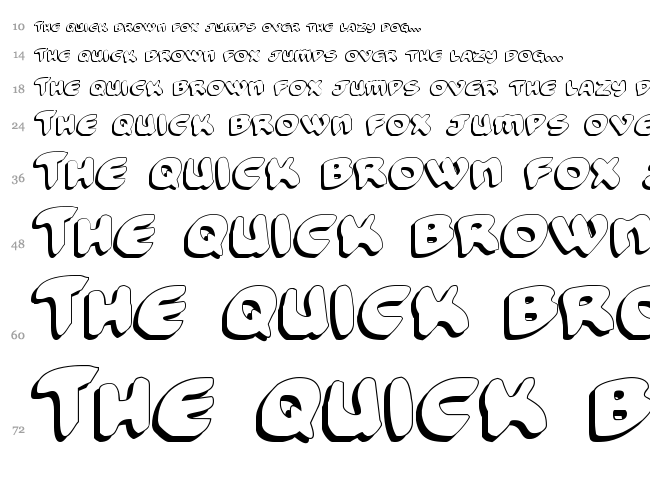 10 The quick brown fox jumps over the lazy dog...
14 The quick brown fox jumps over the lazy dog...
18 The quick brown fox jumps over the lazy d
24 The quick brown fox jumps ove
36 The quick brown fox j
48 The quick brown
60 The quick bro
72 The quick b